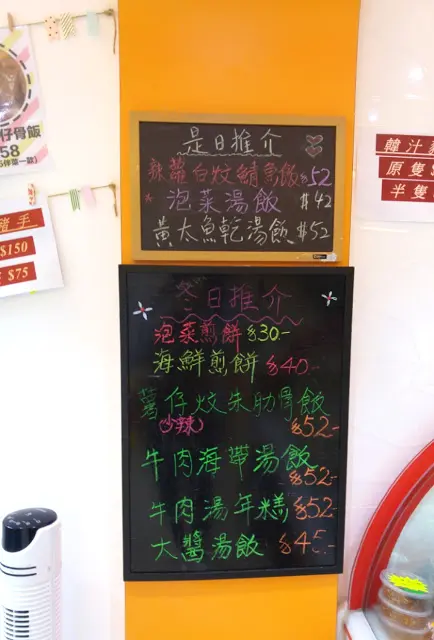 仔骨飯
58
豬手
$150
$75
是日推介
辣蘿白炆鯖魚飯 $52
* 泡菜湯飯 $42
黃太魚乾湯飯 $52
冬日推介
泡菜煎餅 $30-
海鮮煎餅 $40-
薯仔炆朱肋骨飯
(少辣) $52-
牛肉海帶湯飯
$52-
牛肉湯年糕 $52-
大醬湯飯 $45-
韓汁
原隻 $
半隻